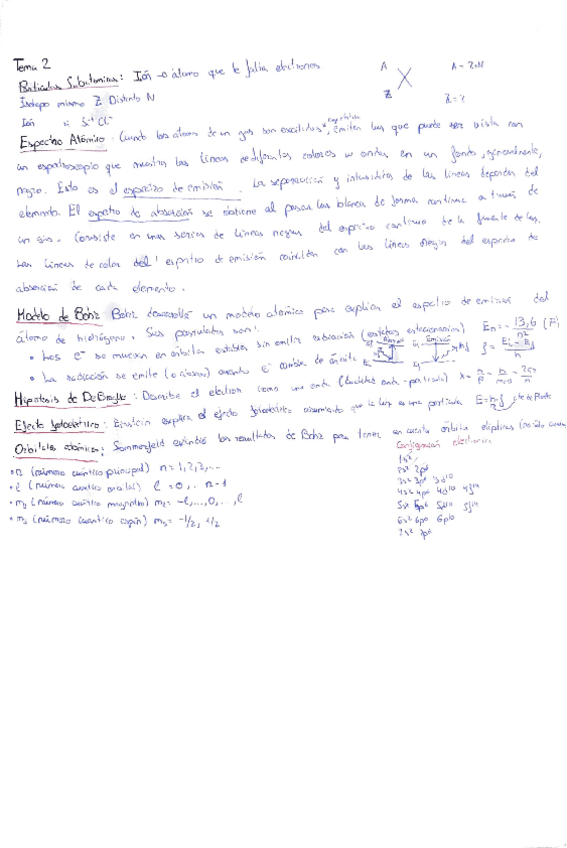 Tema 2
Partículas Subatómicas: Ión → átomo que le faltan electrones
A
X
Z
A = Z+N
Z = ?
Isótopo mismo Z Distinto N
Ión " S⁻² Cl⁻
Espectro Atómico: Cuando los átomos de un gas son excitados, emiten luz que puede ser vista con
un espectroscopio que muestra las líneas de diferentes colores u ondas en un fondo, generalmente,
negro. Esto es el espectro de emisión. La separación y intensidades de las líneas dependen del
elemento. El espectro de absorción se obtiene al pasar luz blanca de forma continua a través de
un gas. Consiste en unas series de líneas negras del espectro continuo de la fuente de luz.
Las líneas de color del espectro de emisión coinciden con las líneas negras del espectro de
absorción de cada elemento.
Modelo de Bohr Bohr desarrolló un modelo atómico para explicar el espectro de emisión del
átomo de hidrógeno. Sus postulados son:
En = - 13,6 / n²
• Los e⁻ se mueven en órbitas estables sin emitir radiación (estados estacionarios)
• La radiación se emite (o absorve) cuando e⁻ cambia de órbita
Hipótesis de De Broglie: Describe el electrón como una onda (Dualidad onda-partícula)
Efecto fotoeléctrico: Einstein explica el efecto fotoeléctrico asumiendo que la luz es una partícula E=h·f cte de Planck
Orbitales atómicos: Sommerfeld extendió los resultados de Bohr para tener en cuenta órbitas elípticas
Configuración electrónica
• n (número cuántico principal) n = 1, 2, 3, ...
• l (número cuántico orbital) l = 0, .. n-1
• ml (número cuántico magnético) ml = -l, ..., 0, .., l
• ms (número cuantico espín) ms = -1/2, 1/2
1s²
2s² 2p6
3s² 3p6 3d10
4s² 4p6 4d10 4f14
5s² 5p6 5d10 5f14
6s² 6p6 6d10
7s² 7p6